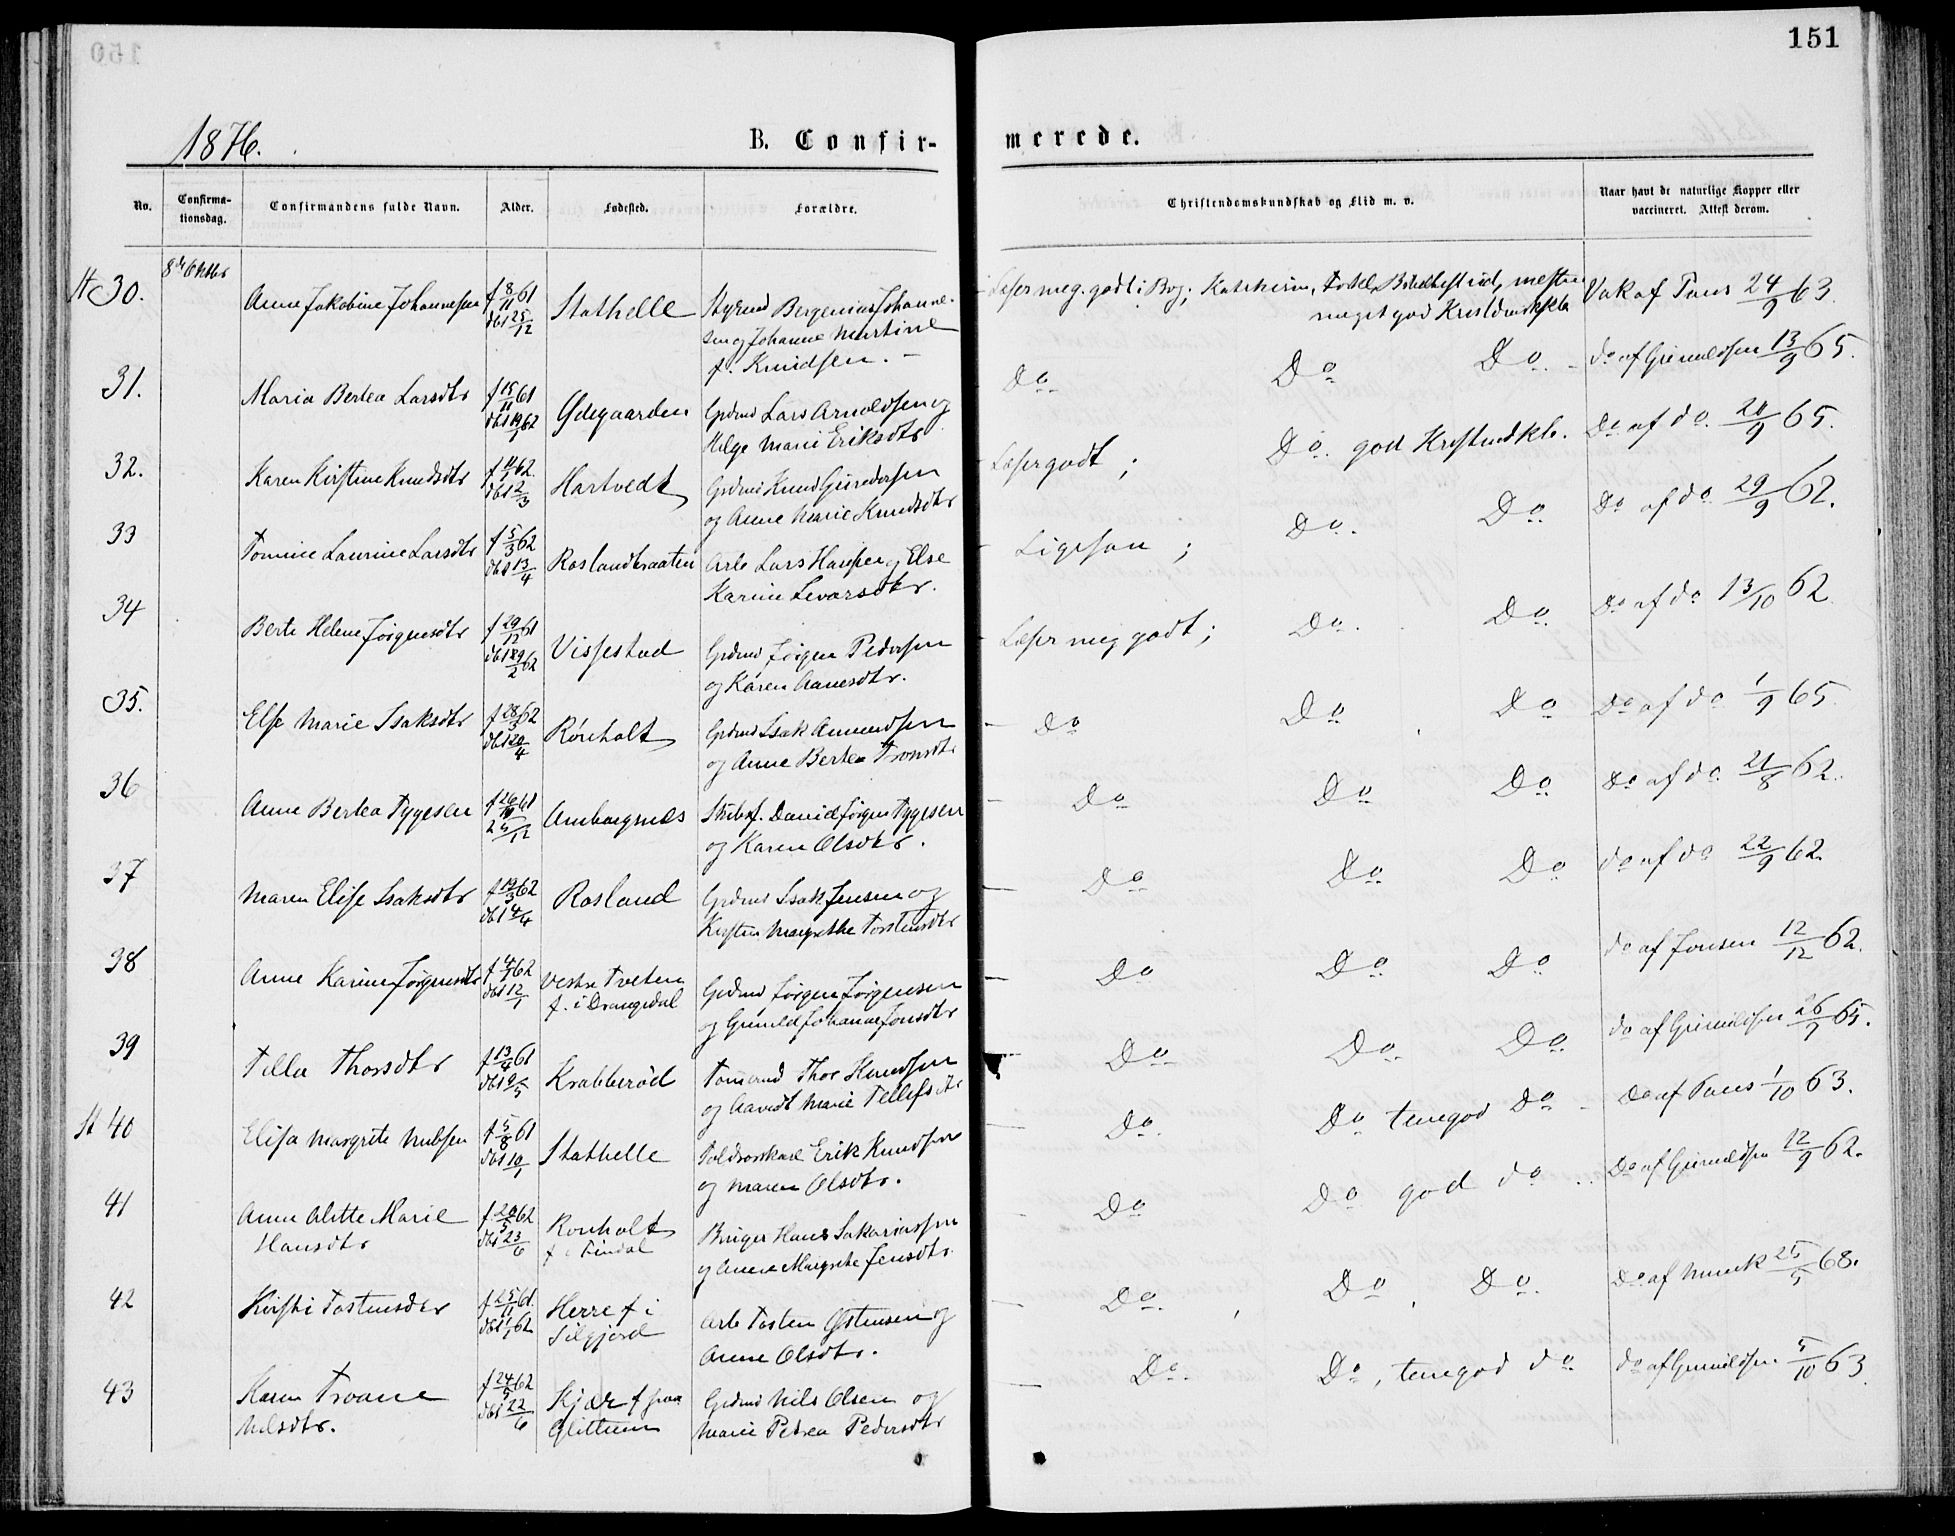 151
1876.
B. Confir-
merede.
No.
Confirma-
tionsdag.
Confirmandens fulde Navn.
Alder.
Fødested.
Forældre.
Christendomskundskab og Flid m. v.
Naar havt de naturlige Kopper eller
vaccineret. Attest derom.
St 30.
8de Oktbr
Anne Jakobine Johannesen
f 8/11 61
dbt 25/12
Stathelle
Bergenius Johanne-
sen og Johanne Martine
f. Knudsen. -
Læser meg. godt i Bog;
meget god
Vak af Paus 24/9 63.
31.
Maria Bertea Larsdtr
f 15/11 61
dbt 19/1 62
Ødegaarden
Grdmd Lars Arnoldsen og
Helge Marie Eriksdtr
Do
Do
Do. -
do af Gunuldsen 13/9 65.
32.
Karen Kirstine Knudsdtr
f 11/1 62
dbt 2/3
Hartvedt
Grdmd Knud
og Anne Marie Knudsdtr
Læser godt ;
Do. god
Do af do. 20/9 65.
33
Tomine Laurine Larsdtr
f 5/3 62
dbt 13/4
Roslandbraaten
Arb Lars Hansen og Else
Karine Levorsdtr.
Ligesaa ;
Do.
Do
Do af do 29/9 62.
34
Berte Helene Jørgensdtr
f 29/12 61
Vissestad
Grdmd Jørgen Pedersen
og Karen Aanesdtr.
Læser meg godt ;
Do.
Do.
Do af do 13/10 62
35.
Else Marie Isaksdtr
f 28/3 62
dbt 20/4
Rønholt
Grdmd Isak Amundsen
og Anne Bertea Tronsdtr
Do
Do
Do
Do af do 1/9 65
36
Anne Bertea Tygesen
f 26/10 61
Ambargnæs
Skibsf. David Jørgen Tygesen
og Karen Olsdtr.
Do
Do
Do
Do af do. 21/8 62.
37
Maren Elise Isaksdtr
f 19/3 62
Rosland
Grdmd Isak Jensen og
Kirsten Margrethe Torstensdtr
Do
Do
Do
do af do 22/9 62.
38
Anne Karine Jørgensdtr
f 4/1 62
dbt 12/1
Vestre Tveten
f. i Drangedal
Grdmd Jørgen Jørgensen
og Gunild Johanne Jonsdtr
Do
Do
Do
do af Jonsen 12/12 62.
39
Tella Thorsdtr
f 13/4 61
dbt 9/5
Krabberød
Tømmermd Thor Knudsen
og Aavedt Marie Tellefsdtr
Do
Do
Do
do af Gunuldsen 26/9 65.
St 40
Elisa Margrete Nubsen
f 5/8 61
Stathelle
Toldroskarl Erik Knudsen
og Maren Olsdtr.
Do.
Do temgod Do -
Do af Paus 1/10 63.
41
Anne Alette Marie
Hansdtr
f 20/5 62
dbt 23/6
Ronholt
Bruger Hans Sakariassen
og Anne Margrete Jensdtr.
Do
Do god do
Do af Gunuldsen 12/9 62.
42
Kirsti Tostensdtr
f 25/11 61.
Herre f i
Silgjord
Arb Tosten Østensen og
Anne Olsdtr.
Do.
Do
Do.
Do af Munk 25/5 68.
43
Karen Troane
Nilsdtr.
f 24/5 62
dbt 22/6
Kjær f paa
Glittum
Grdmd Nils Olsen og
Marie Petrea Pedersdtr
Do.
Do, temgod do
do af Gunuldsen. 5/10 63